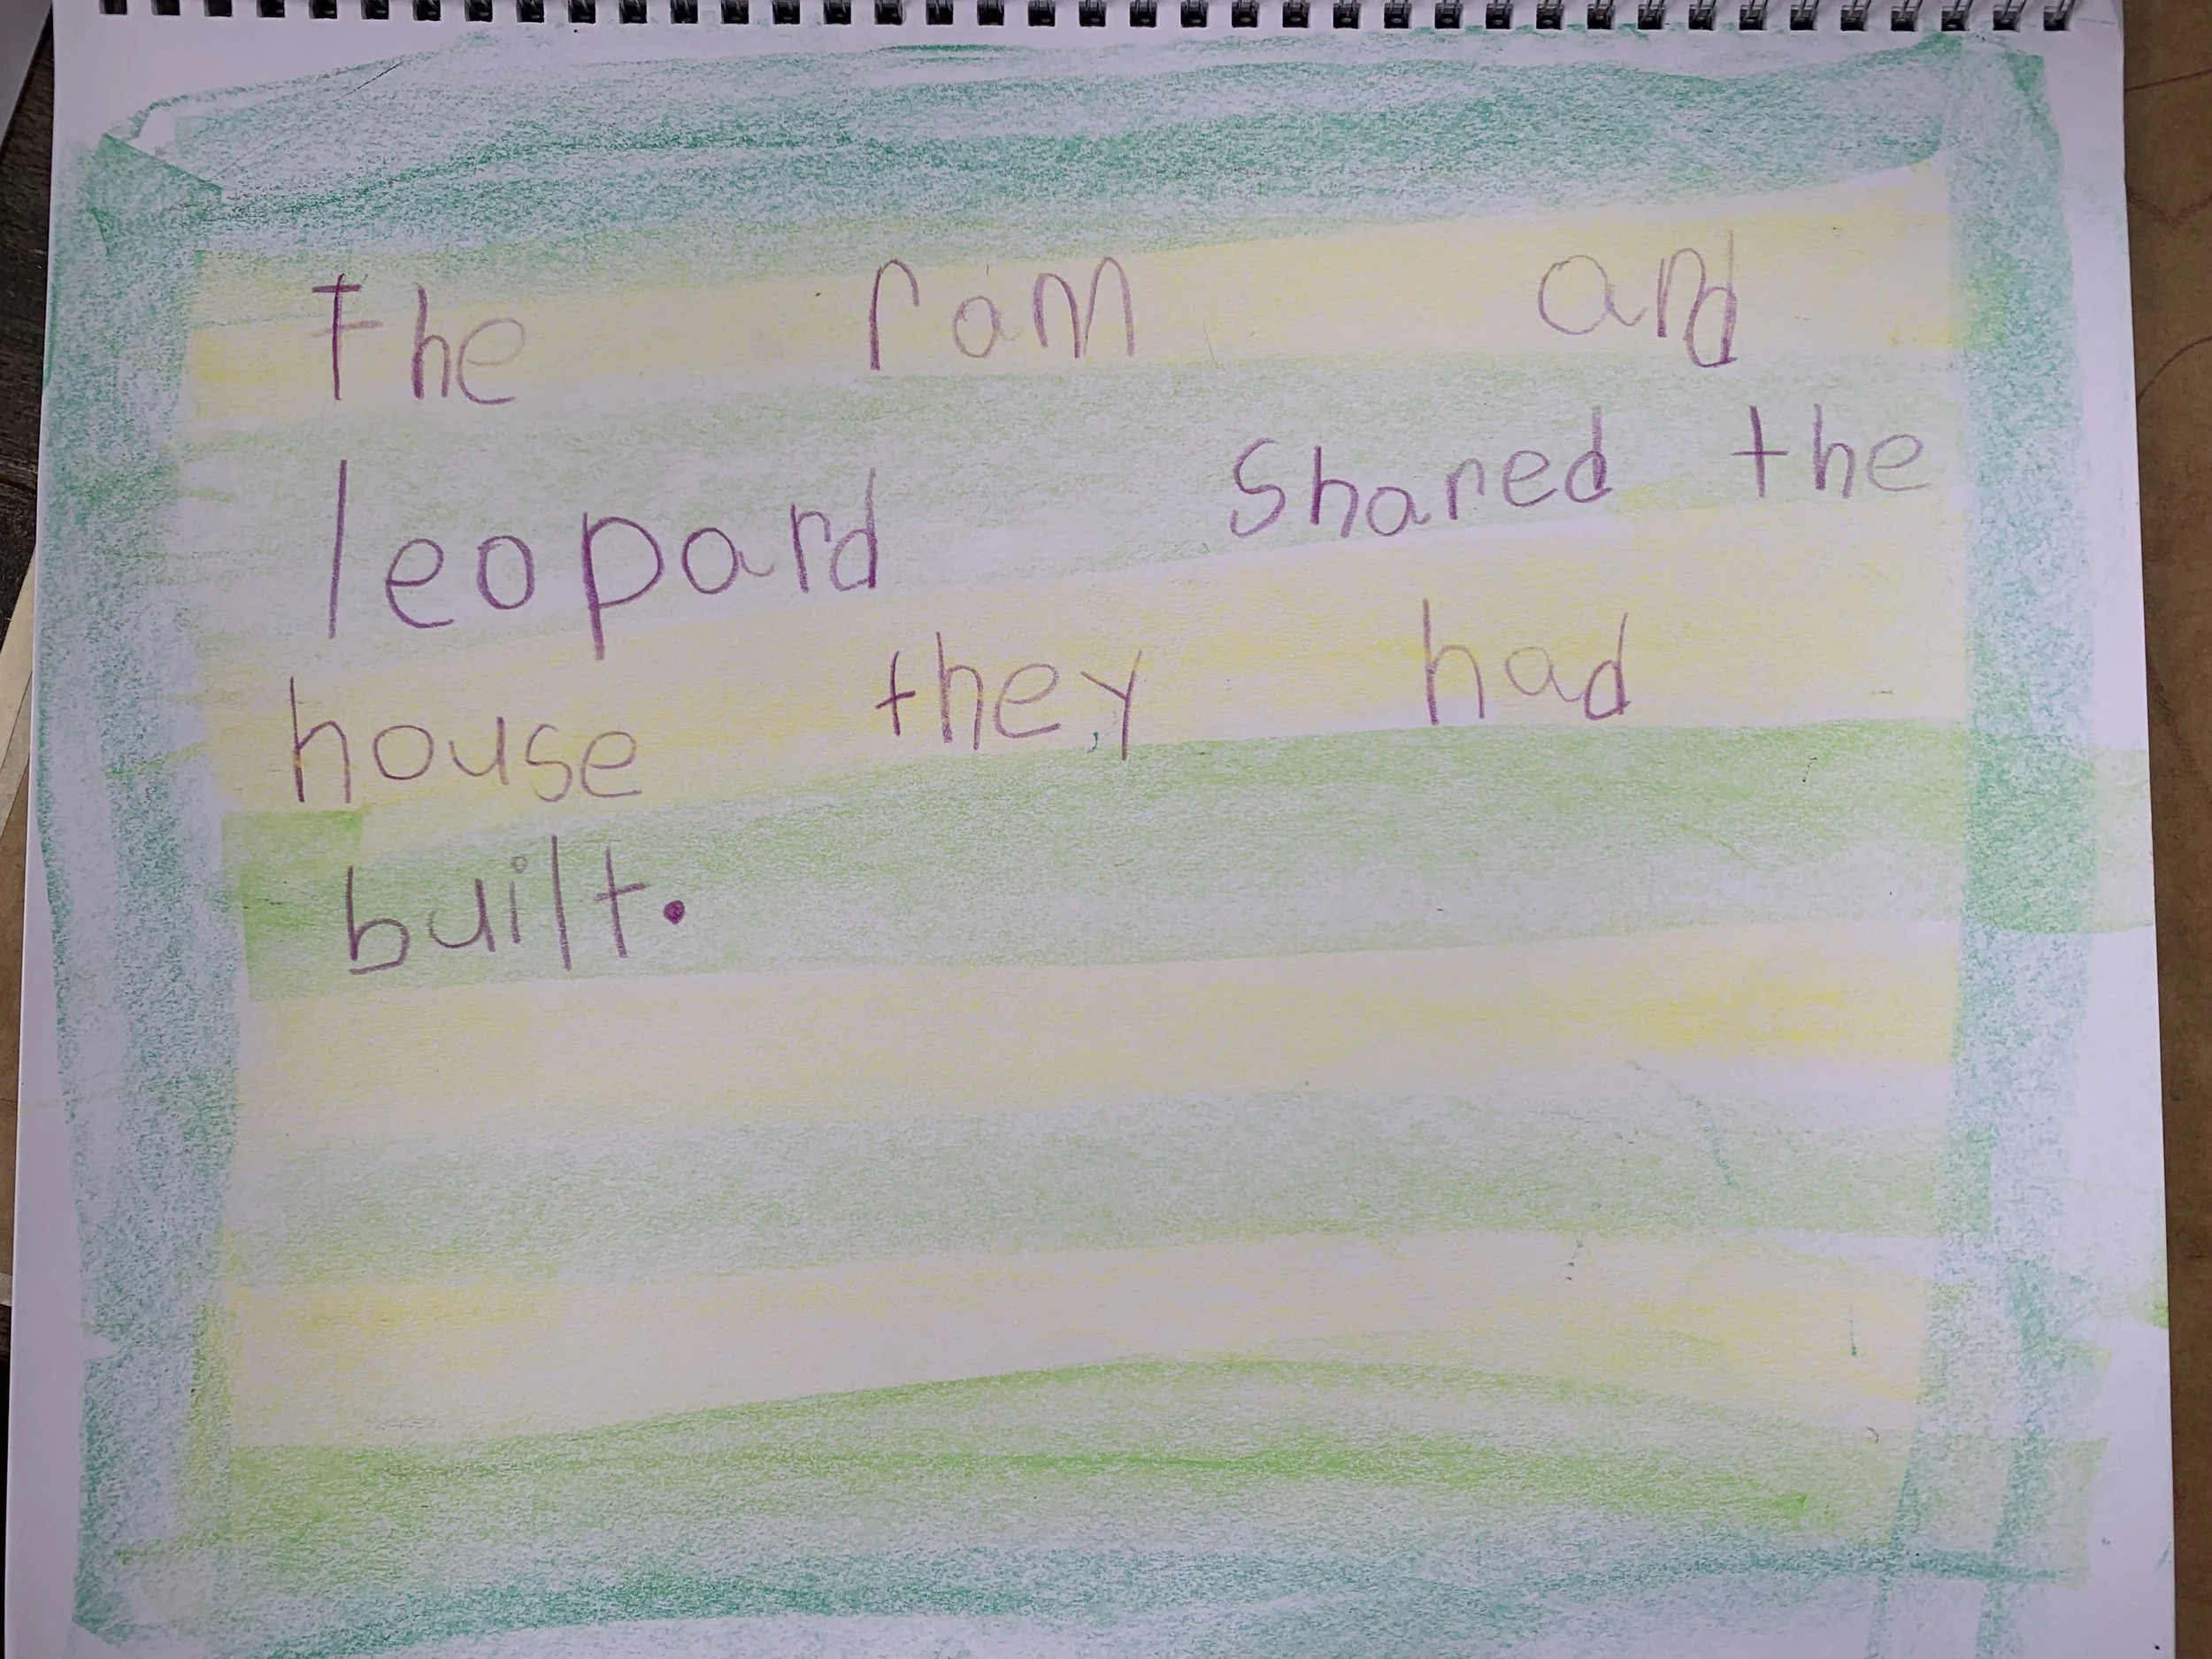 The ram and
leopard shared the
house they had
built.